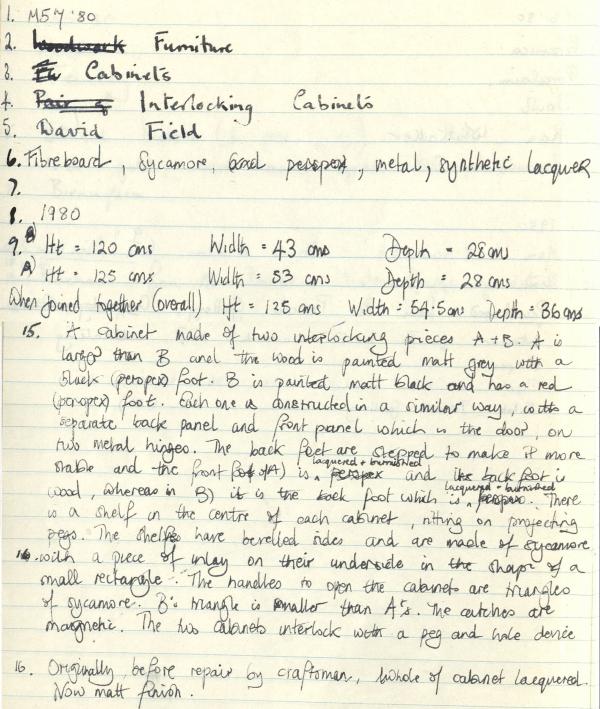 1. M57 '80
2. Woodwork Furniture
3. Cabinets
4. Pair of Interlocking Cabinets
5. David Field
6. Fibreboard, Sycamore, and perspex, metal, synthetic lacquer
7.
8. 1980
9. B) Ht = 120 cms Width = 43 cms Depth = 28 cms
A) Ht = 125 cms Width = 53 cms Depth = 28 cms
When joined together (overall) Ht = 125 cms Width = 54.5cms Depth = 36cms
15. A cabinet made of two interlocking pieces A + B. A is
larger than B and the wood is painted matt grey with a
black (perspex) foot. B is painted matt black and has a red
(perspex) foot. Each one is constructed in a similar way, with a
separate back panel and front panel which is the door, on
two metal hinges. The back feet are stepped to make it more
stable and the front foot of (A) is perspex lacquered + burnished and its back foot is
wood, whereas in B) it is the back foot which is lacquered + burnished perspex. There
is a shelf in the centre of each cabinet, sitting on projecting
pegs. The shelves have bevelled sides and are made of sycamore
16. with a piece of inlay on their underside in the shape of a
small rectangle. The handles to open the cabinets are triangles
of sycamore. B's triangle is smaller than A's. The catches are
magnetic. The two cabinets interlock with a peg and hole device
16. Originally, before repair by craftsman, whole of cabinet lacquered.
Now matt finish.